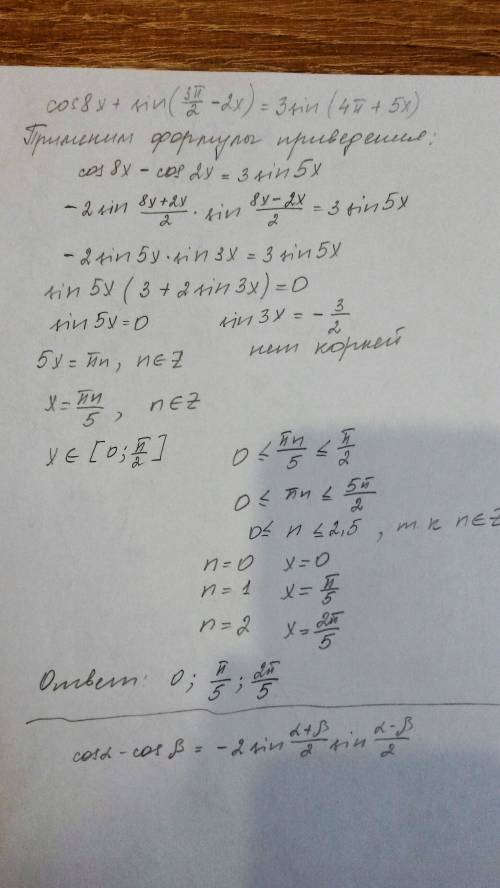 cos8x + sin(3π/2 - 2x) = 3sin(4π + 5x)
Применим формулы приведения:
cos8x - cos2x = 3sin5x
-2sin (8x+2x)/2 · sin (8x-2x)/2 = 3sin5x
-2sin5x·sin3x = 3sin5x
sin5x(3 + 2sin3x) = 0
sin5x = 0 sin3x = -3/2
нет корней
5x = πn, n∈Z
x = πn/5, n∈Z
x∈[0; π/2] 0 ≤ πn/5 ≤ π/2
0 ≤ πn ≤ 5π/2
0 ≤ n ≤ 2,5, т к n∈Z
n=0 x=0
n=1 x=π/5
n=2 x=2π/5
Ответ: 0; π/5; 2π/5
cosα - cosβ = -2sin (α+β)/2 sin (α-β)/2